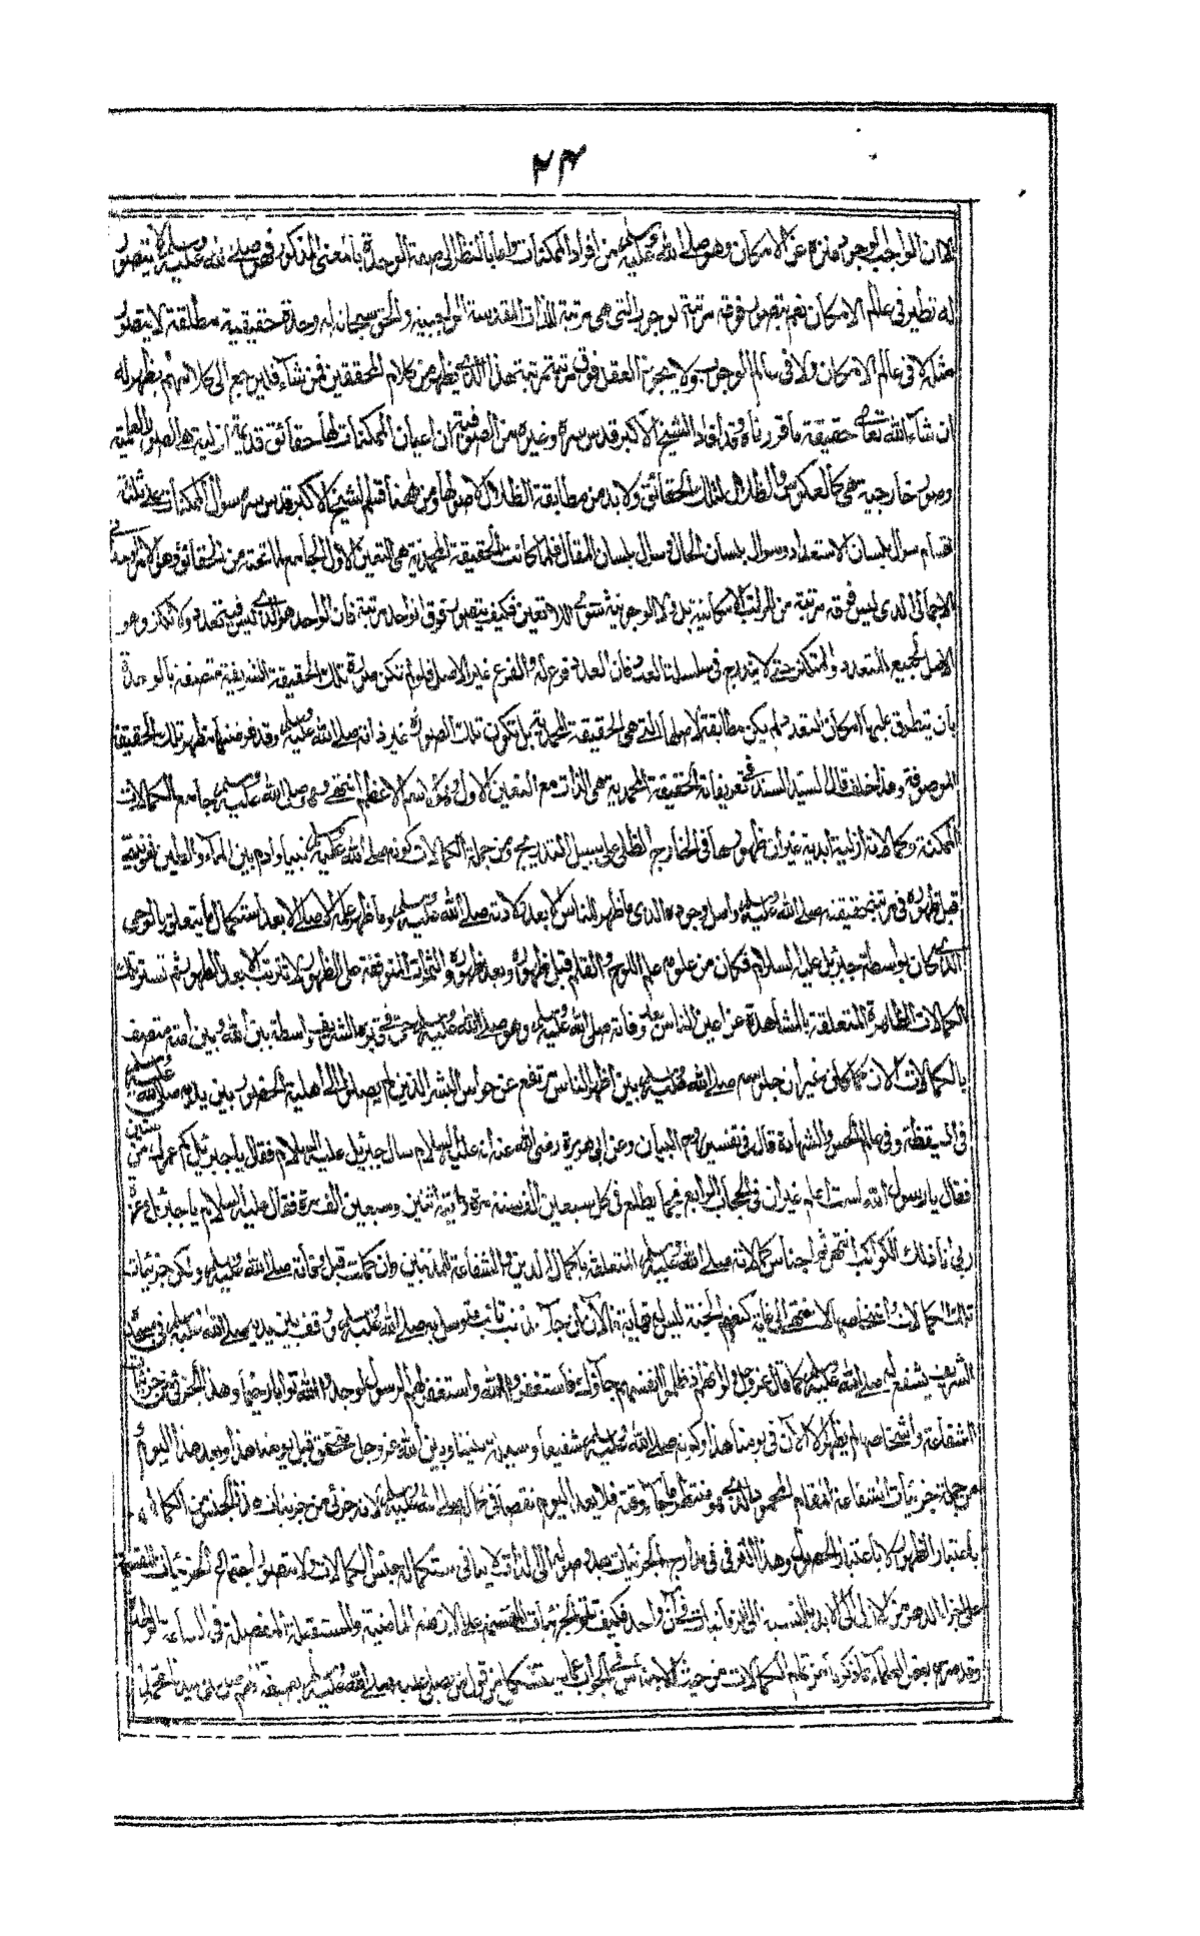 ٢٤
لان الواجب الوجود منزه عن الامكان وهو صلى الله عليه وسلم من افراد الممكنات واما بالنظر الى صفة الوحدة بالمعنى المذكور فهو صلى الله عليه وسلم لا يتصور
له نظير فى عالم الامكان نعم يتصور فوقه مرتبة الوجوب التى هى مرتبة الذات المقدسة الواجبية والحق سبحانه له وحدة حقيقية مطلقة لا يتصور
مثله لا فى عالم الامكان ولا فى عالم الوجوب ولا يجوز العقل فوق مرتبته مرتبة هذا الذى يظهر من كلام المحققين فمن شاء فليرجع الى كلامهم يظهر له
ان شاء الله تعالى حقيقة ما قررناه وقد افاد الشيخ الاكبر قدس سره وغيره من الصوفية ان اعيان الممكنات لها حقائق قديمة ازلية هى الصور العلمية
وصور خارجية هى كالعكوس والظلال لتلك الحقائق ولا بد من مطابقة الظلال لاصولها ومن ههنا قسم الشيخ الاكبر قدس سره سوال الممكنات على ثلثة
اقسام سوال بلسان الاستعداد وسوال بلسان الحال وسوال بلسان المقال فلما كانت الحقيقة المحمدية هى التعين الاول الجامع لما تحته من الحقائق وهو الامر
الاجمالى الذى ليس فوقه مرتبة من المراتب الامكانية بل ولا الوجوبية سوى اللاتعين فكيف يتصور فوق الواحد مرتبة فان الواحد هو الذى ليس فيه تعدد ولا تكثر وهو
الاصل لجميع المتعدد والمتكثر حتى لا يندرج فى سلسلة العدد فان العدد فرع له والفرع غير الاصل فلو لم تكن صورة تلك الحقيقة الشريفة متصفة بالوحدة
بان يتطرق عليها امكان التعدد لم يكن مطابقة لاصلها التى هى الحقيقة المحمدية بل تكون تلك الصورة غير ذاته صلى الله عليه وسلم وقد فرضنا مظهر تلك الحقيقة
الموصوفة وهذا خلف قال السيد السند فى تعريفاته الحقيقة المحمدية هى الذات مع التعين الاول وهو اسم الاعظم انتهى وهو صلى الله عليه وسلم جامع الكمالات
الممكنة وكمالاته ازلية ابدية غير ان ظهورها فى الخارج الظلى على سبيل التدريج ومن جملة الكمالات كونه صلى الله عليه وسلم نبيا وادم بين الماء والطين
قبل ظهوره فى مرتبة حقيقته صلى الله عليه وسلم واصل وجوده الذى ما ظهر للناس الا بعد ولادته صلى الله عليه وسلم وما ظهر علمه الا بعد استكمال ما يتعلق بالوحى
الذى كان بواسطة جبريل عليه السلام فكان من علومه علم اللوح والقلم قبل ظهوره وبعد ظهوره والثمرات المتوقفة على الظهور لا تترتب الا بعد الظهور ثم تستر تلك
الكمالات الظاهرة المتعلقة بالمشاهدة عن اعين الناس بعد وفاته صلى الله عليه وسلم وهو صلى الله عليه وسلم حى فى قبره الشريف واسطة بين الله وبين امته متصف
بالكمالات الان كما كان غير ان جلوسه صلى الله عليه وسلم بين اظهر الناس ترتفع عن حواس البشر الذين لم يصلوا الى اهلية الحضور بين يديه صلى الله عليه وسلم
فى اليقظة وفى عالم الحس والشهادة قال فى تفسير روح البيان وعن ابى هريرة رضى الله عنه انه عليه السلام سال جبرئيل عليه السلام فقال يا جبرئيل كم عمرك من سنين
فقال يا رسول الله لست اعلم غير ان فى الحجاب الرابع نجما يطلع فى كل سبعين الف سنة مرة رايته اثنين وسبعين الف مرة فقال عليه السلام يا جبرئيل وعزة
ربى انا ذلك الكوكب انتهى ثم اجناس كمالاته صلى الله عليه وسلم المتعلقة باكمال الدين والشفاعة للمذنبين وان كملت قبل وفاته صلى الله عليه وسلم ولكن جزئيات
تلك الكمالات واشخاصها لا تنتهى الى غاية كنعيم الجنة ليس له نهاية فالآن ان جاء مذنب تائب متوسل به صلى الله عليه وسلم ووقف بين يديه صلى الله عليه وسلم فى مسجده
الشريف يشفع له صلى الله عليه وسلم كما قال عز وجل ولو انهم اذ ظلموا انفسهم جاؤك فاستغفروا الله واستغفر لهم الرسول لوجدوا الله توابا رحيما وهذا الجزئى من جزئيات
الشفاعة واشخاصها لم يظهر الا الآن فى يومنا هذا وكونه صلى الله عليه وسلم شفيعا وسيلة بيننا وبين الله عز وجل متحقق قبل يومنا هذا وبعد هذا اليوم
من جملة جزئيات الشفاعة المقام المحمود الذى هو منتظر ما جاء وقته فلا يعد اليوم نقصا فى كمال صلى الله عليه وسلم لانه جزئى من جزئيات ذلك الجنس من الكمالات
باعتبار الظهور لا باعتبار الحصول وهذا الترقى فى مدارج الجزئيات
على اجزاء الدهر من الازل الى الابد بالنسبة الى الزمانيات فى آن واحد فكيف تلك الجزئيات المنقسمة على الازمنة الماضية والمستقبلة المفصلة فى الساعة
وقد صرح بعض العلماء